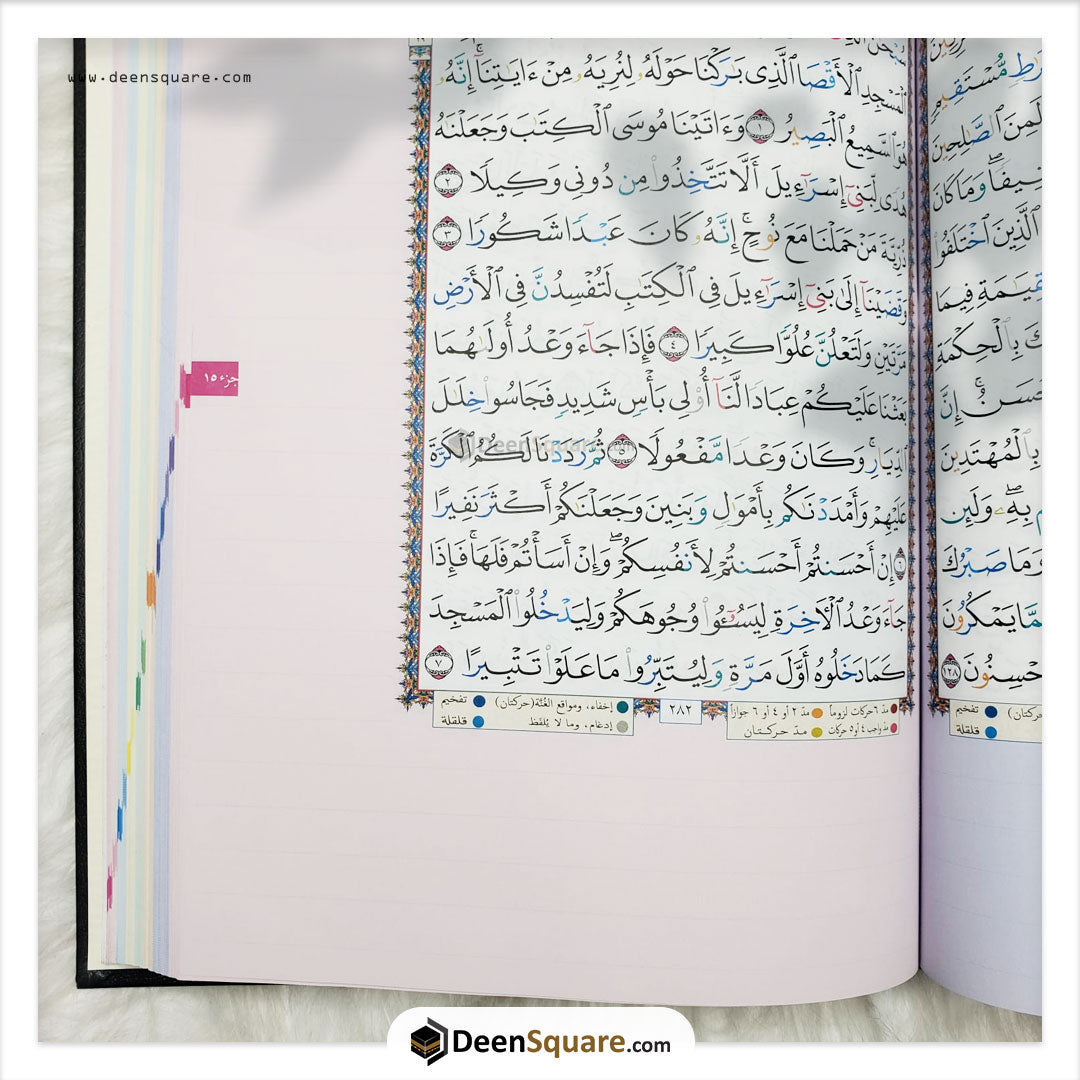 www.deensquare.com
ٱلْمَسْجِدِ ٱلْأَقْصَا ٱلَّذِى بَٰرَكْنَا حَوْلَهُۥ لِنُرِيَهُۥ مِنْ ءَايَٰتِنَآ ۚ إِنَّهُۥ
هُوَ ٱلسَّمِيعُ ٱلْبَصِيرُ ١ وَءَاتَيْنَا مُوسَى ٱلْكِتَٰبَ وَجَعَلْنَٰهُ
هُدًى لِّبَنِىٓ إِسْرَٰٓءِيلَ أَلَّا تَتَّخِذُوا۟ مِن دُونِى وَكِيلًا ٢
ذُرِّيَّةَ مَنْ حَمَلْنَا مَعَ نُوحٍ ۚ إِنَّهُۥ كَانَ عَبْدًا شَكُورًا ٣
وَقَضَيْنَآ إِلَىٰ بَنِىٓ إِسْرَٰٓءِيلَ فِى ٱلْكِتَٰبِ لَتُفْسِدُنَّ فِى ٱلْأَرْضِ
مَرَّتَيْنِ وَلَتَعْلُنَّ عُلُوًّا كَبِيرًا ٤ فَإِذَا جَآءَ وَعْدُ أُولَىٰهُمَا
بَعَثْنَا عَلَيْكُمْ عِبَادًا لَّنَآ أُو۟لِى بَأْسٍ شَدِيدٍ فَجَاسُوا۟ خِلَٰلَ
ٱلدِّيَارِ ۚ وَكَانَ وَعْدًا مَّفْعُولًا ٥ ثُمَّ رَدَدْنَا لَكُمُ ٱلْكَرَّةَ
عَلَيْهِمْ وَأَمْدَدْنَٰكُم بِأَمْوَٰلٍ وَبَنِينَ وَجَعَلْنَٰكُمْ أَكْثَرَ نَفِيرًا
٦ إِنْ أَحْسَنتُمْ أَحْسَنتُمْ لِأَنفُسِكُمْ ۖ وَإِنْ أَسَأْتُمْ فَلَهَا ۚ فَإِذَا
جَآءَ وَعْدُ ٱلْءَاخِرَةِ لِيَسُۥٓـُٔوا۟ وُجُوهَكُمْ وَلِيَدْخُلُوا۟ ٱلْمَسْجِدَ
كَمَا دَخَلُوهُ أَوَّلَ مَرَّةٍ وَلِيُتَبِّرُوا۟ مَا عَلَوْا۟ تَتْبِيرًا ٧
جزء ١٥
DeenSquare.com
مد ٦ حركات لزوماً مد ٢ أو ٤ أو ٦ جوازاً
مد واجب ٤ أو ٥ حركات مد حركتان
٢٨٢
إخفاء، ومواقع الغُنَّة (حركتان) تفخيم
إدغام، وما لا يُلفَظ قلقلة
مُّسْتَقِيمٍ
لَمِنَ ٱلصَّٰلِحِينَ
وَمَا كَانَ
ٱلَّذِينَ ٱخْتَلَفُوا
فِيمَا
بِٱلْحِكْمَةِ
إِنَّ
بِٱلْمُهْتَدِينَ
بِهِۦ ۖ وَلَئِن
وَمَا صَبْرُكَ
مِّمَّا يَمْكُرُونَ
١٢٨
تفخيم
قلقلة
DeenSquare.com